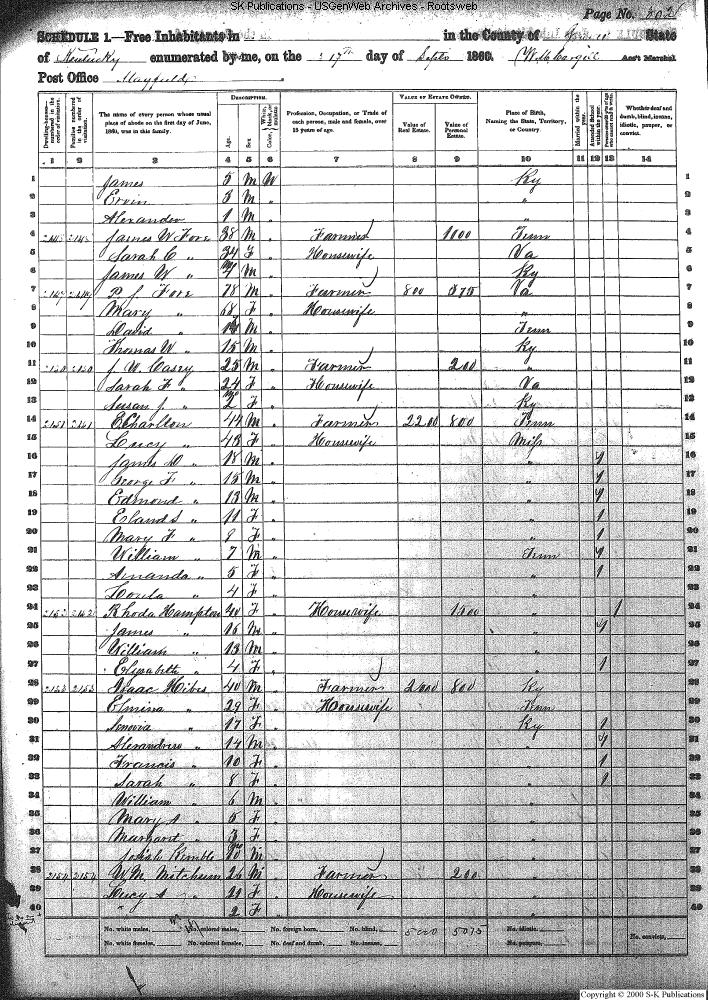 SK-Publications - USGenWeb Archives - Rootsweb
Page No.
SCHEDULE 1.—Free Inhabitants in in the County of State
of Kentucky enumerated by me, on the 17th day of Septr 1860. Ass't Marshal
Post Office Mayfield
Dwelling-houses—numbered in the order of visitation.
Families numbered in the order of visitation.
The name of every person whose usual place of abode on the first day of June, 1860, was in this family.
DESCRIPTION.
Age.
Sex.
Color, White, black, or mulatto.
Profession, Occupation, or Trade of each person, male and female, over 15 years of age.
VALUE OF ESTATE OWNED.
Value of Real Estate.
Value of Personal Estate.
Place of Birth, Naming the State, Territory, or Country.
Married within the year.
Attended School within the year.
Whether deaf and dumb, blind, insane, idiotic, pauper, or convict.
1 2 3 4 5 6 7 8 9 10 11 12 13 14
1 James 5 M W Ky 1
2 Ervin 3 M " " 2
3 Alexander 1 M " " 3
4 James W Fore 38 M " Farmer 1000 Tenn 4
5 Sarah C " 34 F " Housewife Va 5
6 James W " M " Ky 6
7 P. J. Fore 78 M " Farmer 800 Va 7
8 Mary " 68 F " Housewife " 8
9 David " M " Tenn 9
10 Thomas W " 15 M " Ky 10
11 J. W. Casey 25 M " Farmer 200 " 11
12 Sarah F " 24 F " Housewife Va 12
13 Susan J. " F " Ky 13
14 Charlton 44 M " Farmer 2200 800 Tenn 14
15 Lucy " 43 F " Housewife Miss 15
16 James D " 18 M " " 1 16
17 George F " 15 M " " 1 17
18 Edmond " 13 M " " 1 18
19 " 11 F " " 1 19
20 Mary F " 8 F " " 1 20
21 William " 7 M " Tenn 1 21
22 Amanda " 5 F " " 1 22
23 " 4 F " " 23
24 Rhoda Hampton 40 F " Housewife 1500 " 1 24
25 James " 16 M " " 1 25
26 William " 13 M " " 26
27 Elizabeth " 4 F " " 1 27
28 Isaac Hibes 40 M " Farmer 2000 800 Ky 28
29 Elmina " 29 F " Housewife Tenn 29
30 " 17 F " Ky 1 30
31 " 14 M " " 1 31
32 Francis " 10 F " " 1 32
33 Sarah " 8 F " " 1 33
34 William " 6 M " " 34
35 Mary A " 5 F " " 35
36 Margaret " 3 F " " 36
37 Josiah Kimble M " " 37
38 W. M. Mitchum 26 M " Farmer 200 " 38
39 Lucy A " 21 F " Housewife " 39
40 " 2 F " " 40
No. white males, No. colored males, No. foreign born, No. blind, 5000 5075 No. idiotic,
No. white females, No. colored females, No. deaf and dumb, No. insane, No. paupers, No. convicts,
Copyright © 2000 S-K Publications